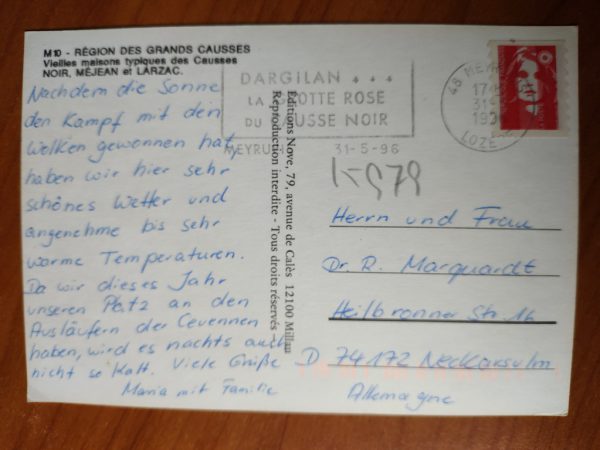 M10 - RÉGION DES GRANDS CAUSSES
Vieilles maisons typiques des Causses
NOIR, MÉJEAN et LARZAC.
Nachdem die Sonne
den Kampf mit den
Wolken gewonnen hat,
haben wir hier sehr
schönes Wetter und
angenehme bis sehr
warme Temperaturen.
Da wir dieses Jahr
unseren Platz an den
Ausläufern der Cevennen
haben, wird es nachts auch
nicht so kalt. Viele Grüße
Maria mit Familie
Éditions Nove, 79, avenue de Calès 12100 Millau
Reproduction interdite - Tous droits réservés
DARGILAN
LA GROTTE ROSE
DU CAUSSE NOIR
MEYRUEIS 31-5-96
48 MEYRUEIS
17
31
19
LOZERE
K979
Herrn und Frau
Dr. R. Marquardt
Heilbronner Str. 16
D 74172 Neckarsulm
Allemagne